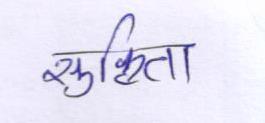 सुक्रिता